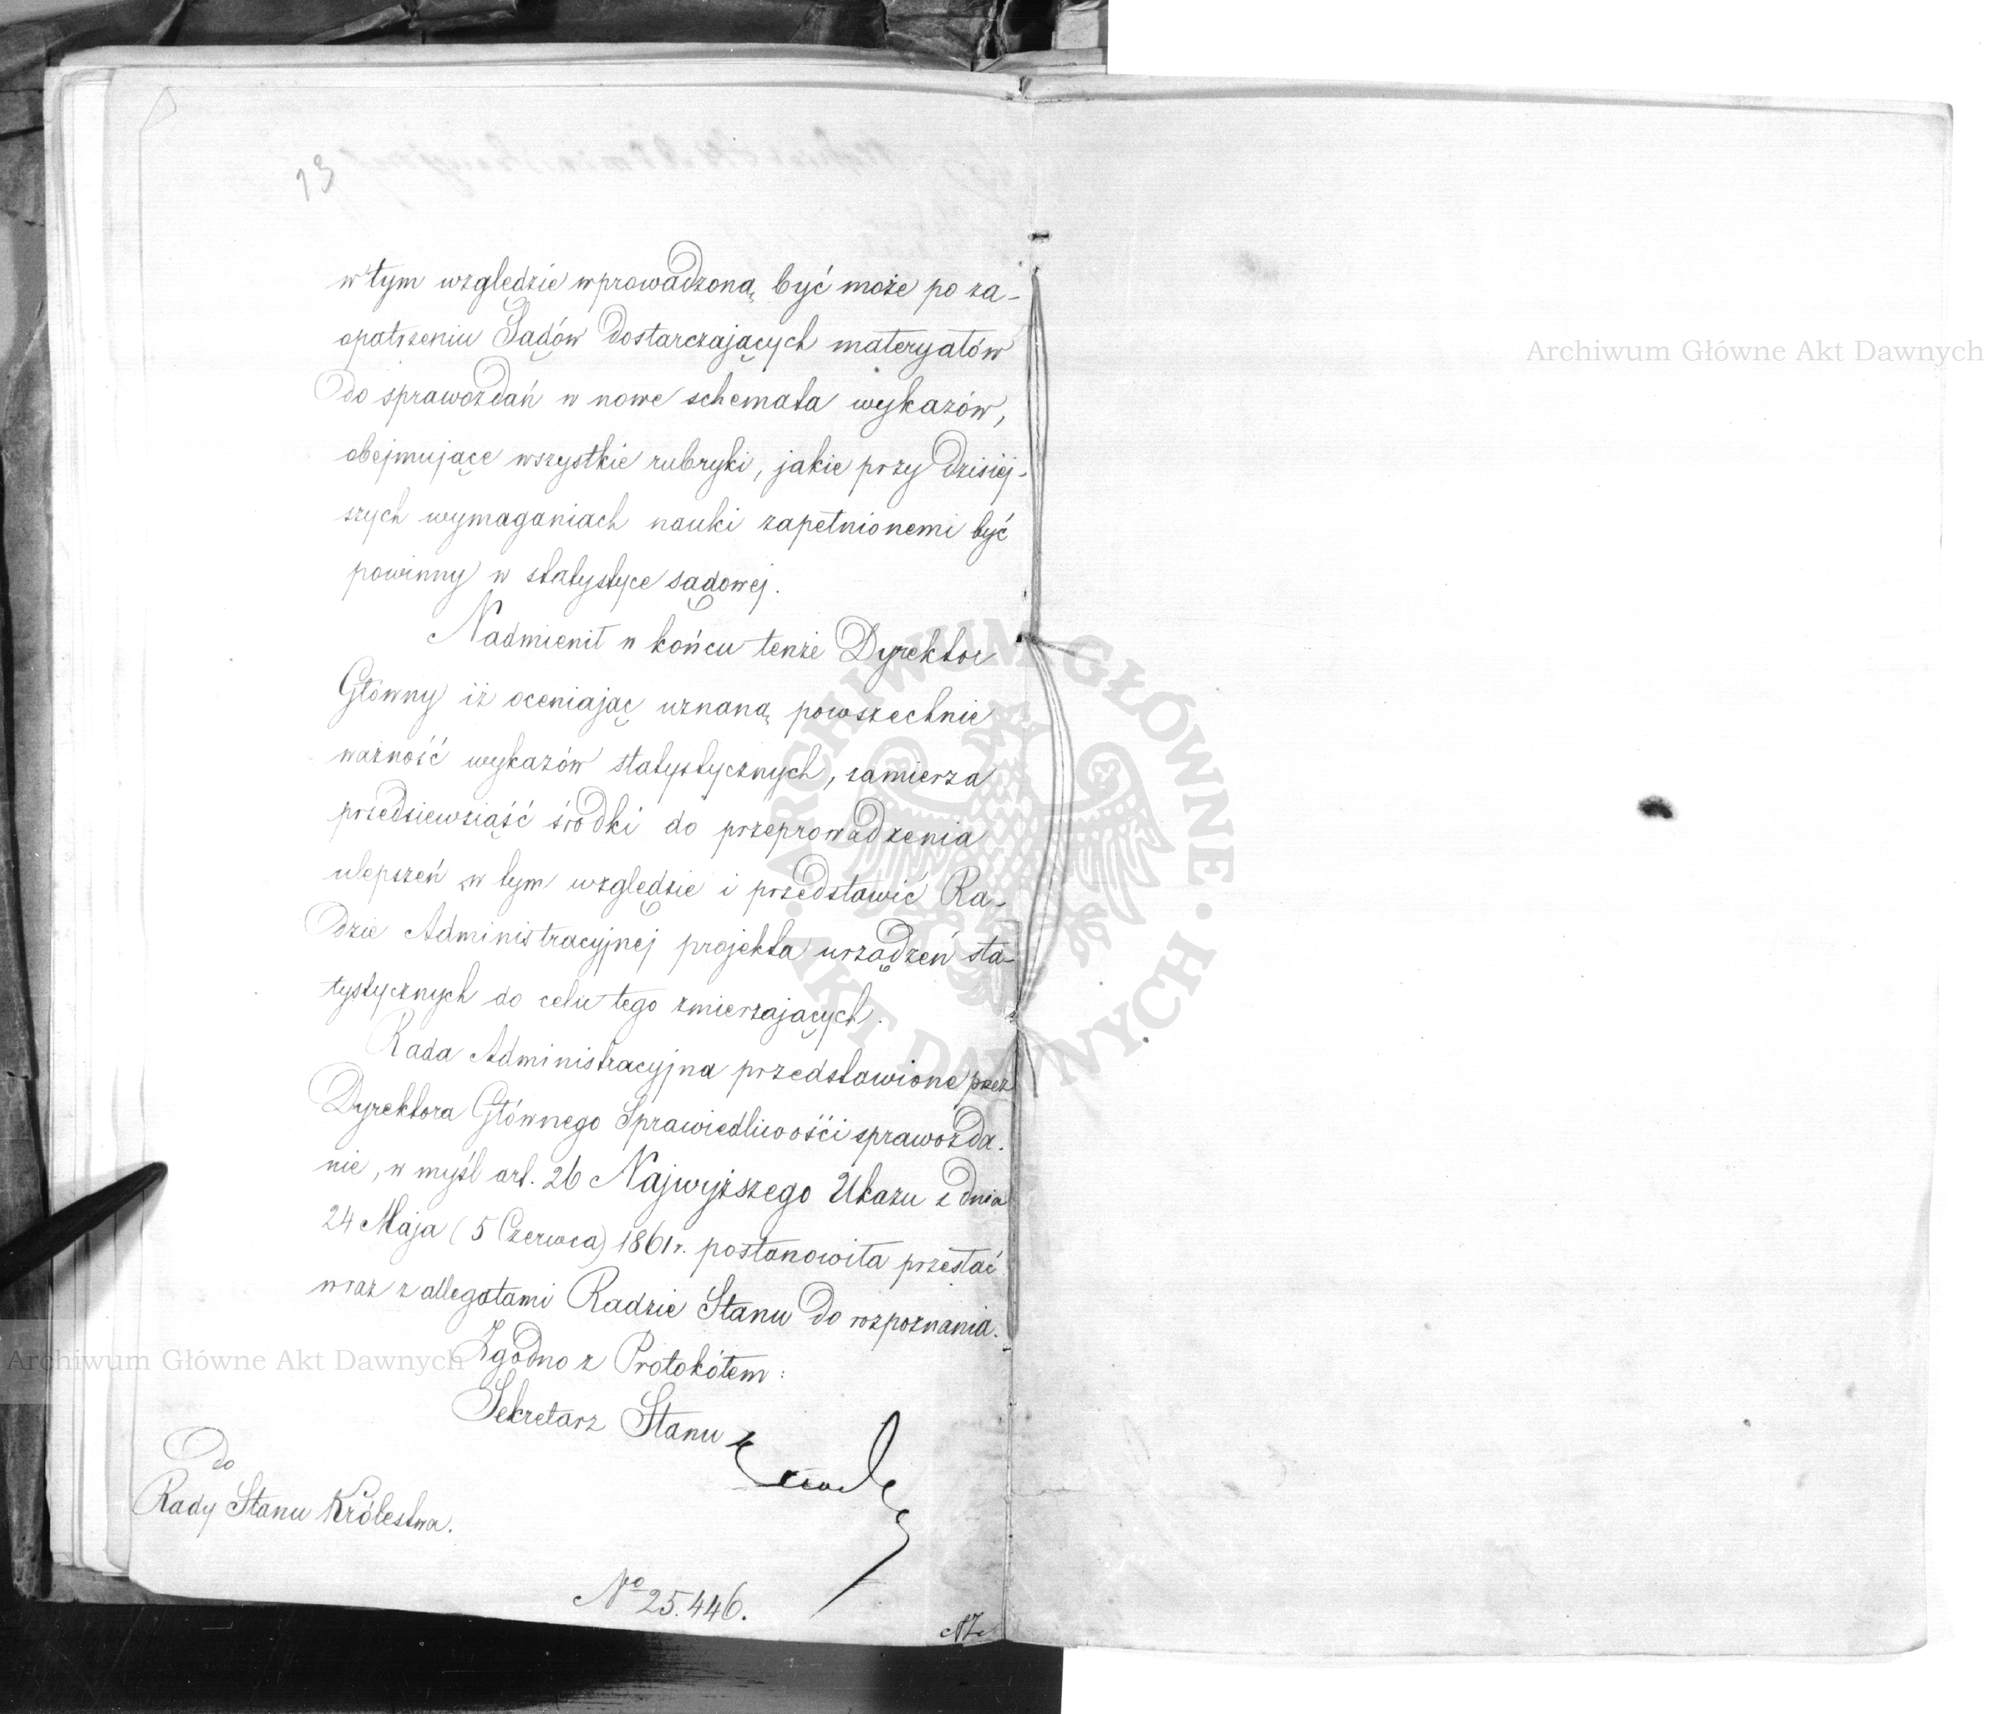 13
w tym względzie wprowadzoną być może po za-
opatrzeniu Sądów dostarczających materyałów
do sprawozdań w nowe schemata wykazów,
obejmujące wszystkie rubryki, jakie przy dzisiej-
szych wymaganiach nauki zapełnionemi być
powinny w statystyce sądowej.
Nadmienił w końcu tenże Dyrektor
Główny iż oceniając uznaną powszechnie
ważność wykazów statystycznych, zamierza
przedsiewziąść środki do przeprowadzenia
ulepszeń w tym względzie i przedstawić Ra-
dzie Administracyjnej projekta urządzeń sta-
tystycznych do celu tego zmierzających.
Rada Administracyjna przedstawione przez
Dyrektora Głównego Sprawiedliwości sprawozda-
nie, w myśl art. 26 Najwyższego Ukazu z dnia
24 Maja (5 Czerwca) 1861 r. postanowiła przesłać
wraz z allegatami Radzie Stanu do rozpoznania.
Zgodno z Protokółem:
Sekretarz Stanu
do
Rady Stanu Królestwa.
No 25.446.
Archiwum Główne Akt Dawnych
Archiwum Główne Akt Dawnych
ARCHIWUM GŁÓWNE AKT DAWNYCH